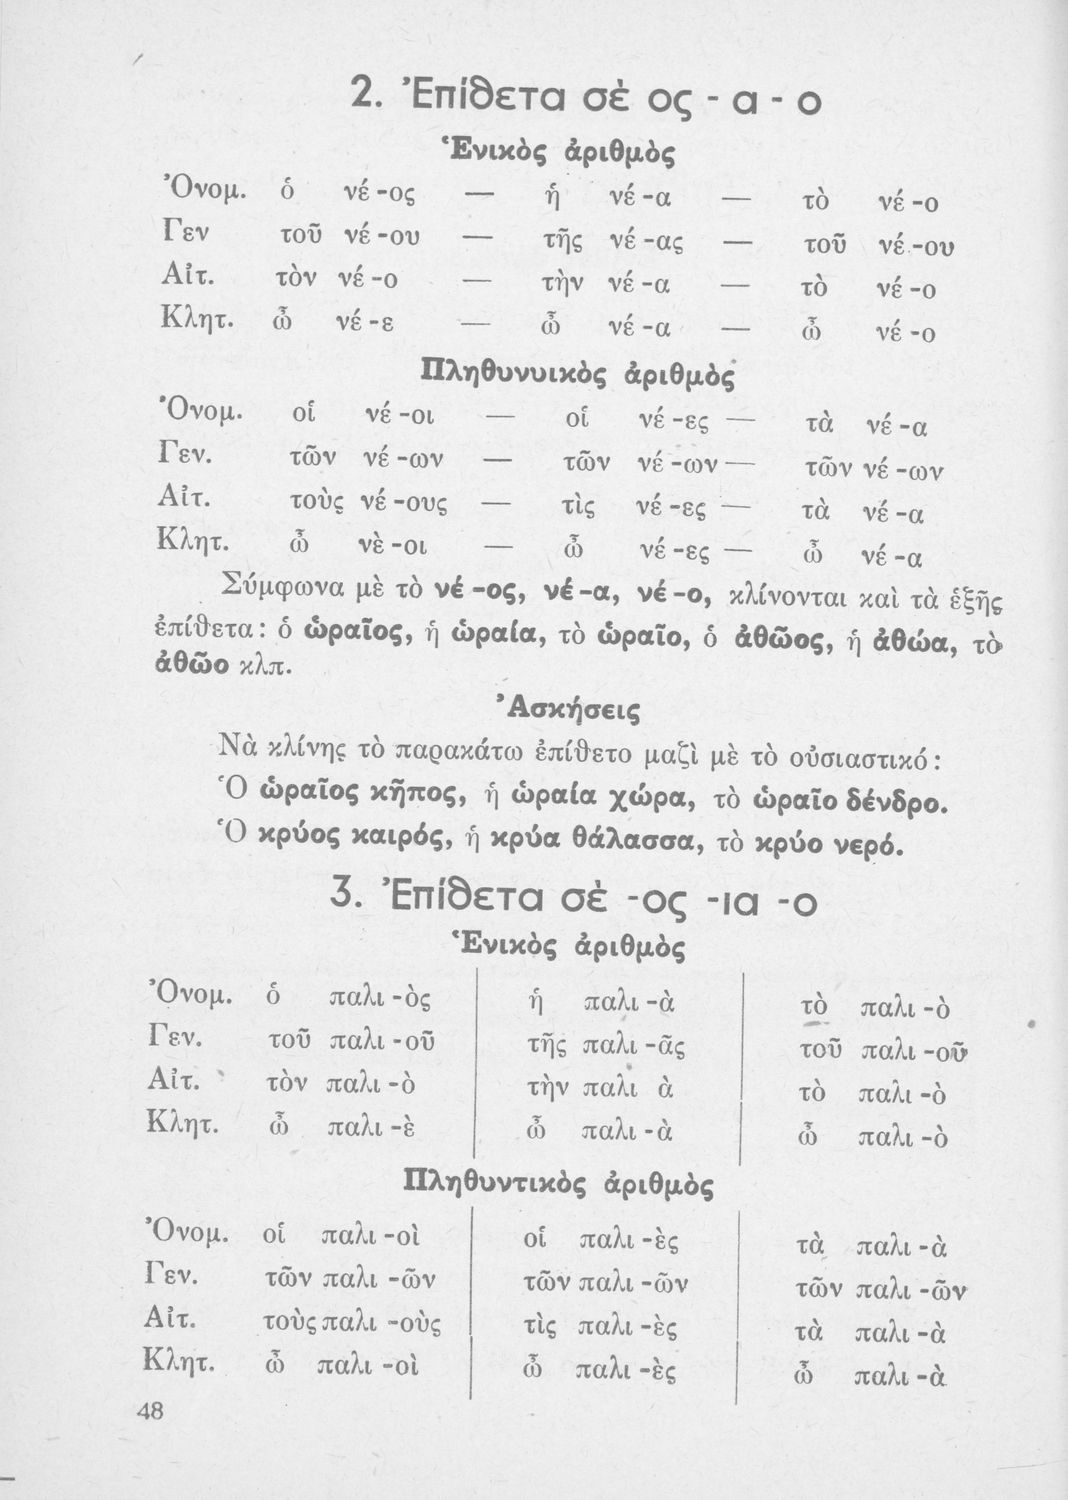 2. Ἐπίθετα σὲ ος - α - ο
Ἑνικὸς ἀριθμὸς
Ὀνομ. ὁ νέ -ος — ἡ νέ -α — τὸ νέ -ο
Γεν τοῦ νέ -ου — τῆς νέ -ας — τοῦ νέ -ου
Αἰτ. τὸν νέ -ο — τὴν νέ -α — τὸ νέ -ο
Κλητ. ὦ νέ -ε — ὦ νέ -α — ὦ νέ -ο
Πληθυνυικὸς ἀριθμὸς
Ὀνομ. οἱ νέ -οι — οἱ νέ -ες — τὰ νέ -α
Γεν. τῶν νέ -ων — τῶν νέ -ων — τῶν νέ -ων
Αἰτ. τοὺς νέ -ους — τὶς νέ -ες — τὰ νέ -α
Κλητ. ὦ νὲ -οι — ὦ νέ -ες — ὦ νέ -α
Σύμφωνα μὲ τὸ νέ -ος, νέ -α, νέ -ο, κλίνονται καὶ τὰ ἑξῆς
ἐπίθετα: ὁ ὡραῖος, ἡ ὡραία, τὸ ὡραῖο, ὁ ἀθῶος, ἡ ἀθώα, τὸ
ἀθῶο κλπ.
Ἀσκήσεις
Νὰ κλίνῃς τὸ παρακάτω ἐπίθετο μαζὶ μὲ τὸ οὐσιαστικό:
Ὁ ὡραῖος κῆπος, ἡ ὡραία χώρα, τὸ ὡραῖο δένδρο.
Ὁ κρύος καιρός, ἡ κρύα θάλασσα, τὸ κρύο νερό.
3. Ἐπίθετα σὲ -ος -ια -ο
Ἑνικὸς ἀριθμὸς
Ὀνομ. ὁ παλι -ὸς ἡ παλι -ὰ τὸ παλι -ὸ
Γεν. τοῦ παλι -οῦ τῆς παλι -ᾶς τοῦ παλι -οῦ
Αἰτ. τὸν παλι -ὸ τὴν παλι ὰ τὸ παλι -ὸ
Κλητ. ὦ παλι -ὲ ὦ παλι -ὰ ὦ παλι -ὸ
Πληθυντικὸς ἀριθμὸς
Ὀνομ. οἱ παλι -οὶ οἱ παλι -ὲς τὰ παλι -ὰ
Γεν. τῶν παλι -ῶν τῶν παλι -ῶν τῶν παλι -ῶν
Αἰτ. τοὺς παλι -οὺς τὶς παλι -ὲς τὰ παλι -ὰ
Κλητ. ὦ παλι -οὶ ὦ παλι -ὲς ὦ παλι -ὰ
48